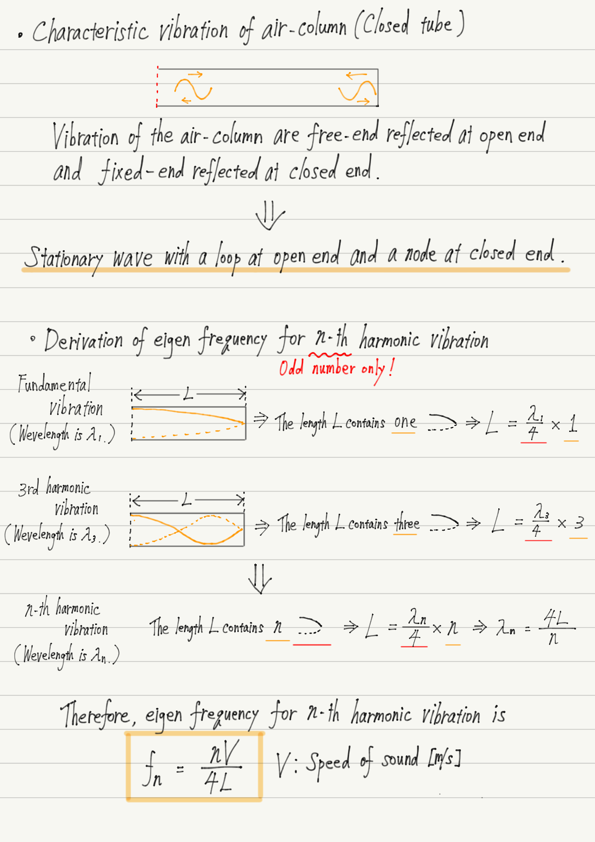 • Characteristic vibration of air-column (Closed tube)
Vibration of the air-column are free-end reflected at open end
and fixed-end reflected at closed end.
⇓
Stationary wave with a loop at open end and a node at closed end.
• Derivation of eigen frequency for n-th harmonic vibration
Odd number only!
Fundamental
vibration
(Wevelength is λ₁.)
L
⇒ The length L contains one ⇒ L = λ₁/4 × 1
3rd harmonic
vibration
(Wevelength is λ₃.)
L
⇒ The length L contains three ⇒ L = λ₃/4 × 3
⇓
n-th harmonic
vibration
(Wevelength is λn.)
The length L contains n ⇒ L = λn/4 × n ⇒ λn = 4L/n
Therefore, eigen frequency for n-th harmonic vibration is
fn = nV/4L V: Speed of sound [m/s]